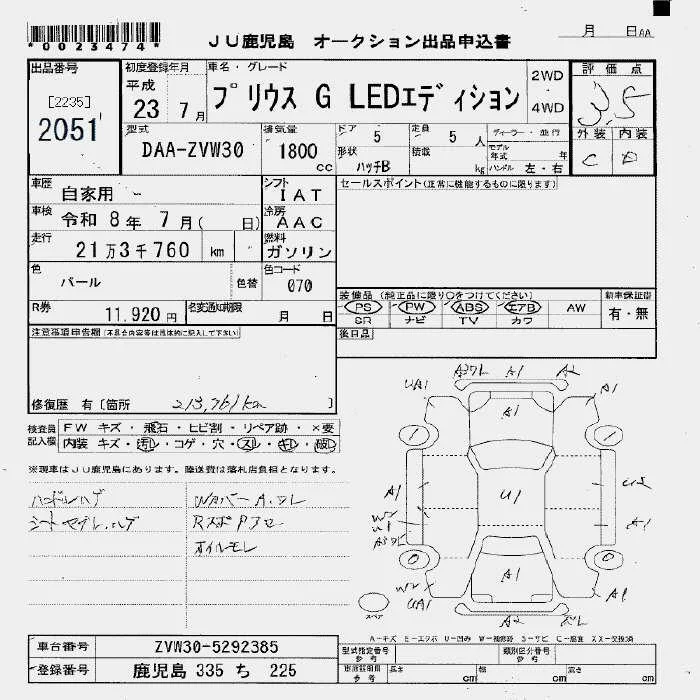 *0023474*
JU鹿児島 オークション出品申込書
月 日AA
出品番号
[2235]
2051
初度登録年月
平成
23 7月
車名・グレード
プリウス G LEDエディション
2WD
・
4WD
評価点
3.5
外装 内装
C D
型式
DAA-ZVW30
排気量
1800
cc
ドア 5
形状 ハッチB
定員 5 人
積載 kg
ディーラー・並行
モデル年式 年
ハンドル 左・右
車歴
自家用
シフト
IAT
セールスポイント(正常に機能するものに限ります)
車検
令和 8年 7月( 日)
冷房
AAC
走行
21万3千760 km
燃料
ガソリン
色
パール
色替
色コード
070
装備品(純正品に限り○をつけてください)
新車保証書
PS PW ABS エアB AW
SR ナビ TV カワ
有・無
R券
11,920円
名変通知期限
月 日
後日品
注意事項申告欄(不具合内容等は具体的に記入して下さい)
修復歴 有〔箇所 213,761km 〕
検査員
記入欄
FW キズ・飛石・ヒビ割・リペア跡・×要
内装 キズ・汚レ・コゲ・穴・スレ・キレ・破レ
※現車はJU鹿児島にあります。陸送費は落札店負担となります。
ハンドルハゲ
オイルモレ
UA1
A1
A2
A1
A1
1
1
A1
U1
A1
0
0
A1
UA1
A1
A2
スペア
A-キズ E-エクボ U-凹み W-補修跡 S-サビ C-腐食 XX-交換済
車台番号
ZVW30-5292385
登録番号
鹿児島 335 ち 225
型式指定番号
参考
類別区分番号
参考
長さ
cm
幅
cm
高さ
cm